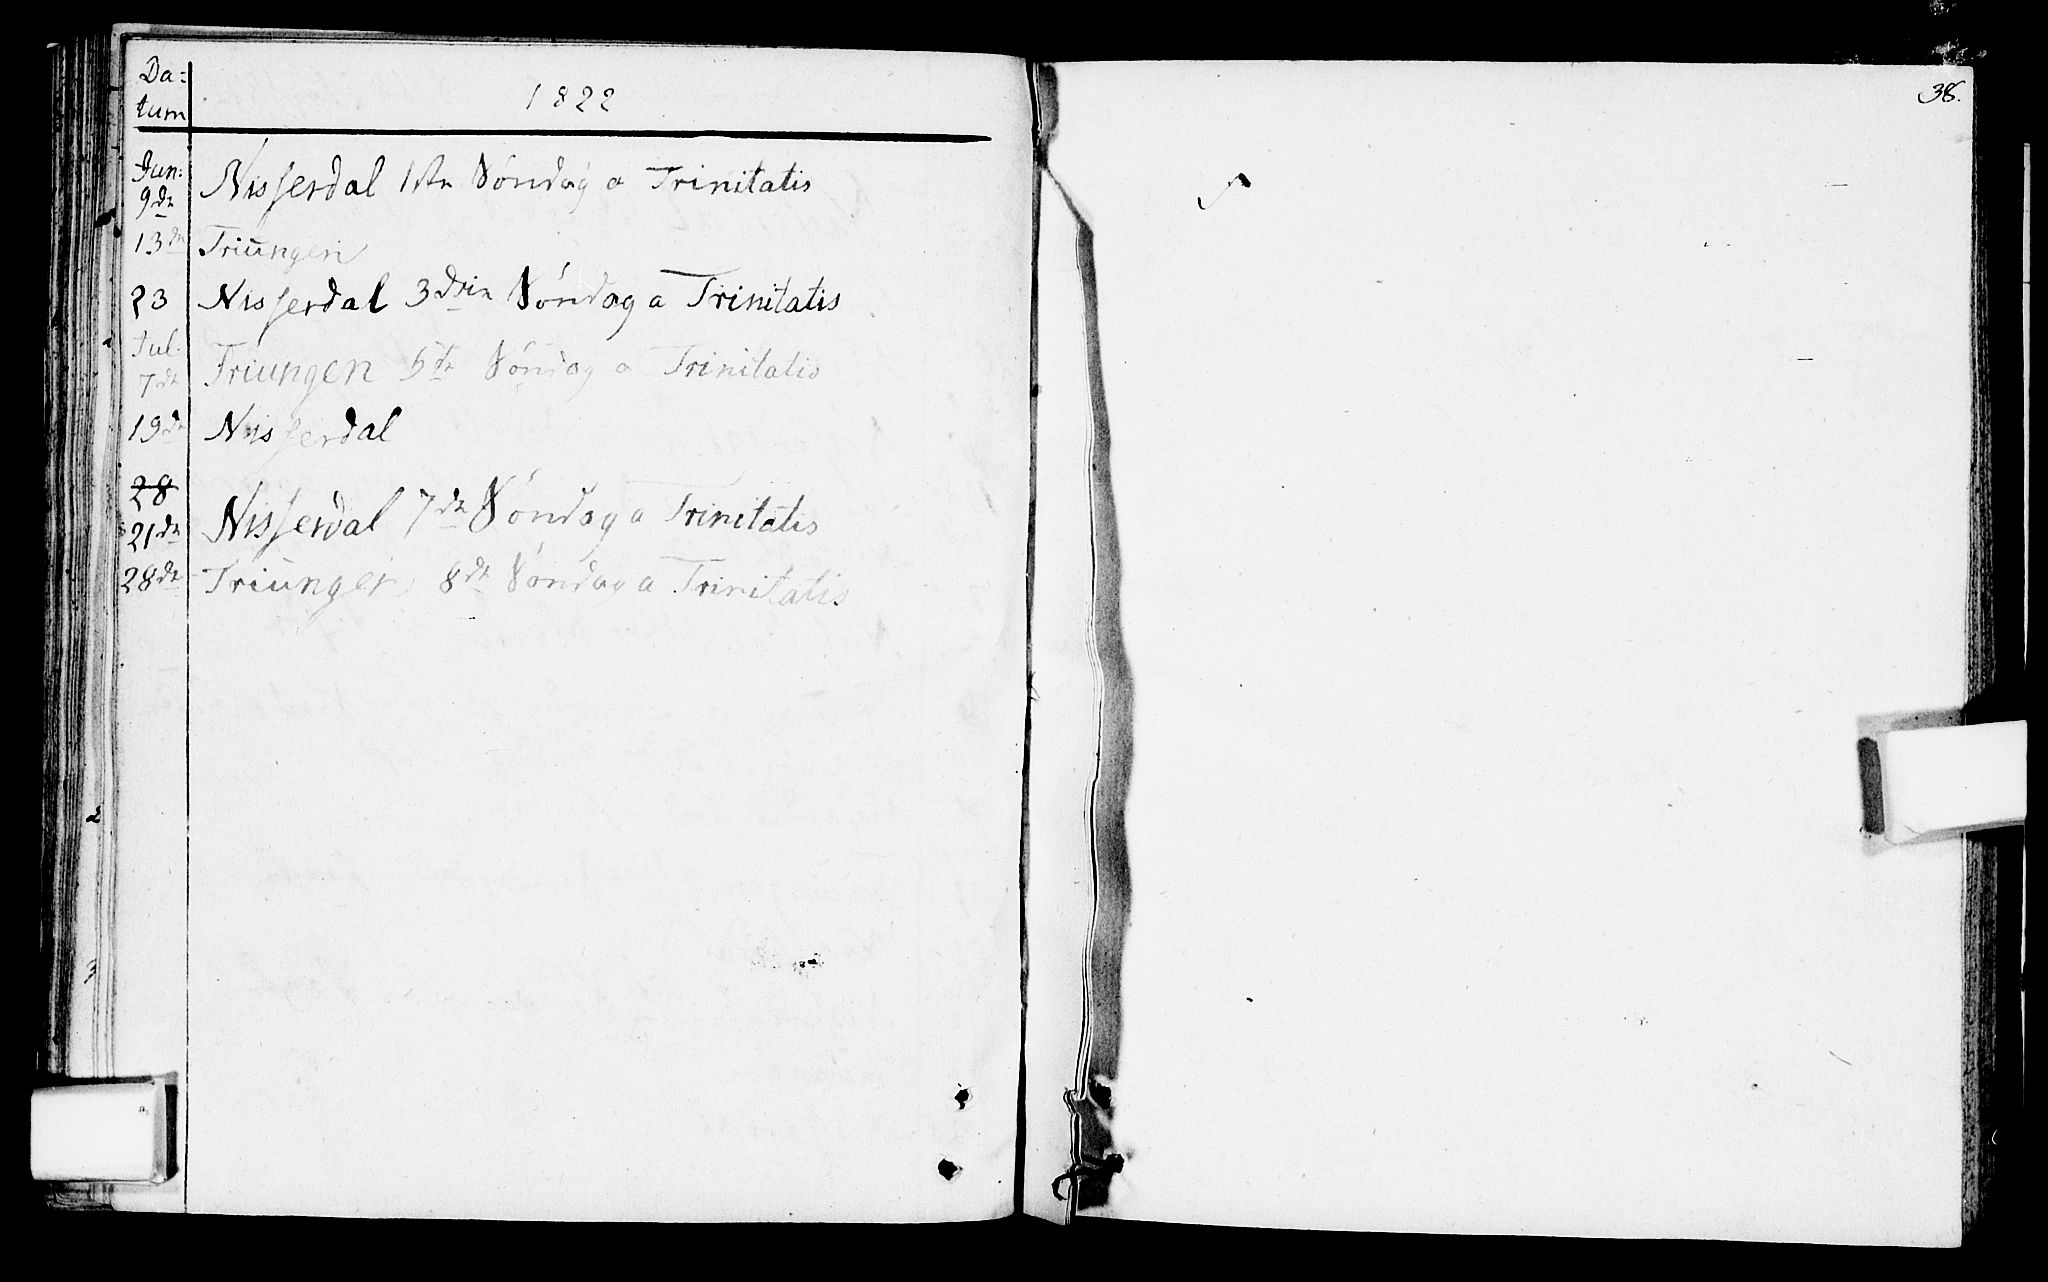 Da=
tum
1822
Jun:
9de Nisserdal 1ste Søndag a Trinitatis
13de Triungen
23 Nisserdal 3die Søndag a Trinitatis
Jul:
7de Triungen 5te Søndag a Trinitatis
19de Nisserdal
28
21de Nisserdal 7de Søndag a Trinitatis
28de Triungen 8de Søndag a Trinitatis
38.